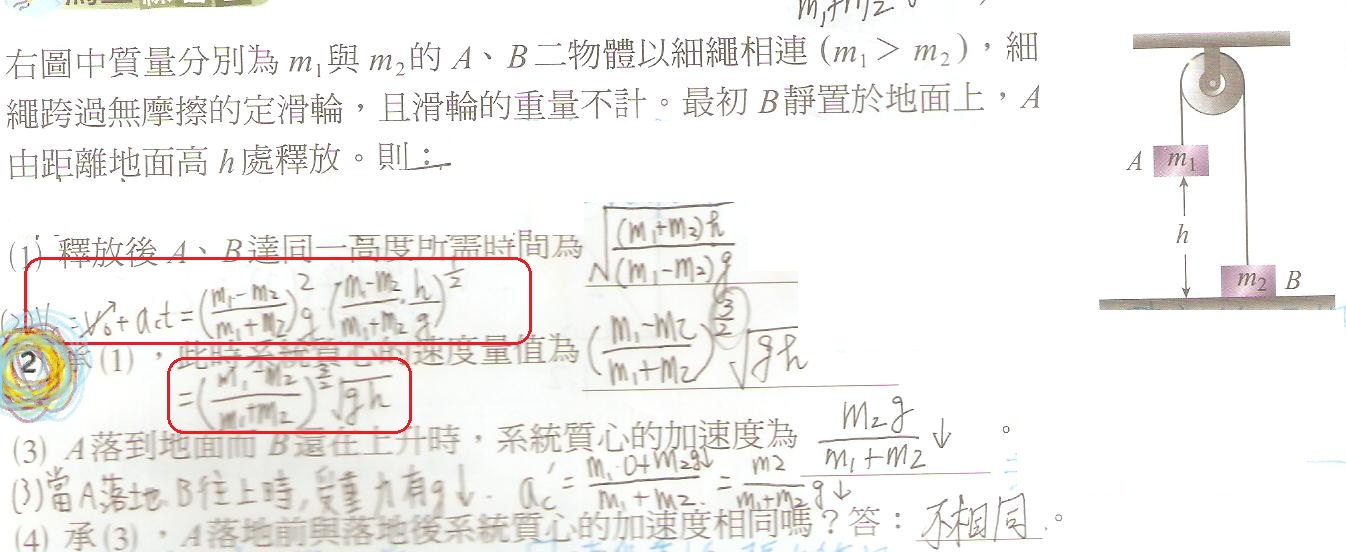 m₁+m₂
右圖中質量分別為 m₁與 m₂的 A、B二物體以細繩相連 (m₁ > m₂),細
繩跨過無摩擦的定滑輪,且滑輪的重量不計。最初 B靜置於地面上,A
由距離地面高 h處釋放。則:
A m₁
h
m₂ B
(1) 釋放後 A、B達同一高度所需時間為 √((m₁+m₂)h/(m₁-m₂)g)
=V₀+act=((m₁-m₂)/(m₁+m₂))²g·((m₁-m₂)/(m₁+m₂)·h/g)^(1/2)
2 承(1),此時系統質心的速度量值為 ((m₁-m₂)/(m₁+m₂))^(3/2)√gh
=((m₁-m₂)/(m₁+m₂))^(3/2)√gh
(3) A落到地面而 B還在上升時,系統質心的加速度為 m₂g/(m₁+m₂)↓ 。
(3)當A落地 B往上時,受重力有g↓. ac'=(m₁·0+m₂g↓)/(m₁+m₂)=m₂/(m₁+m₂)g↓
(4) 承(3),A落地前與落地後系統質心的加速度相同嗎?答:不相同。